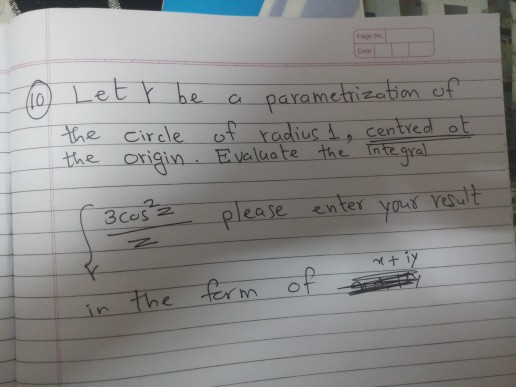 Page No.
Date
(10) Let γ be a parametrization of
the circle of radius 1, centred at
the origin. Evaluate the integral
∫γ 3cos²z / z please enter your result
in the form of x + iy